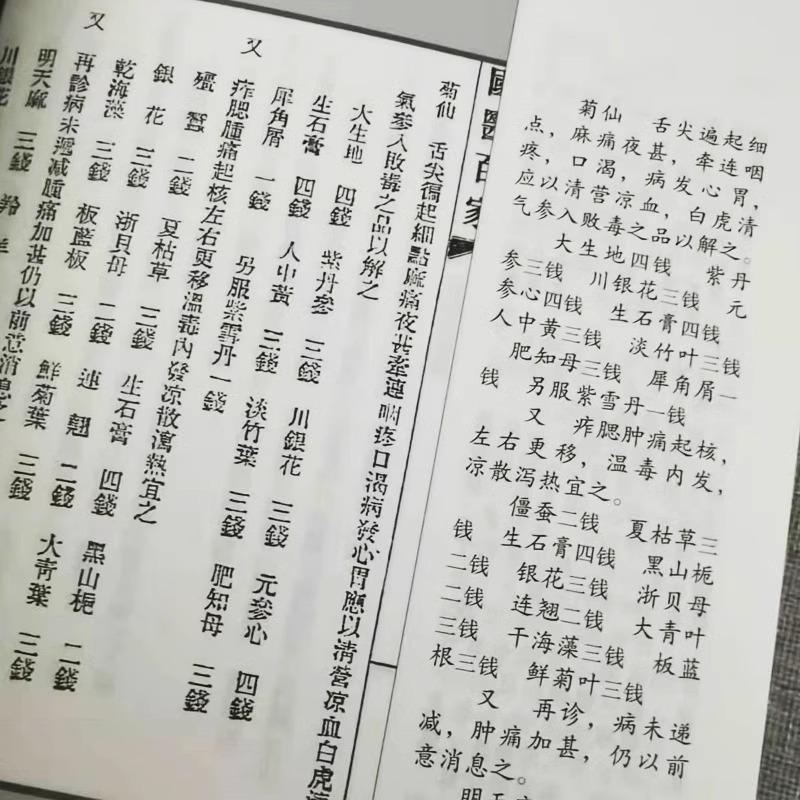 國醫百家
菊仙 舌尖徧起細點麻痛夜甚牽連咽疼口渴病發心胃應以清營凉血白虎清
氣參入敗毒之品以解之
大生地 四錢 紫丹參 三錢 川銀花 三錢 元參心 四錢
生石膏 四錢 人中黃 三錢 淡竹葉 三錢 肥知母 三錢
犀角屑 一錢 另服紫雪丹一錢
又 痄腮腫痛起核左右更移溫毒內發凉散瀉熱宜之
殭蠶 二錢 夏枯草 三錢 生石膏 四錢 黑山梔 二錢
銀花 三錢 浙貝母 二錢 連翹 二錢 大青葉 三錢
乾海藻 三錢 板藍板 三錢 鮮菊葉 三錢
又 再診病未遞減腫痛加甚仍以前意消息之
明天麻 三錢 羚羊
川銀花
菊仙 舌尖遍起细
点,麻痛夜甚,牵连咽
疼,口渴,病发心胃,
应以清营凉血,白虎清
气参入败毒之品以解之。
大生地四钱 紫丹
参三钱 川银花三钱 元
参心四钱 生石膏四钱
人中黄三钱 淡竹叶三钱
肥知母三钱 犀角屑一
钱 另服紫雪丹一钱
又 痄腮肿痛起核,
左右更移,温毒内发,
凉散泻热宜之。
僵蚕二钱 夏枯草三
钱 生石膏四钱 黑山栀
二钱 银花三钱 浙贝母
二钱 连翘二钱 大青叶
三钱 干海藻三钱 板蓝
根三钱 鲜菊叶三钱
又 再诊,病未递
减,肿痛加甚,仍以前
意消息之。
明天麻